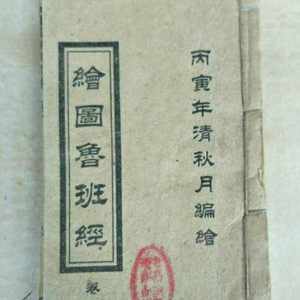 丙寅年清秋月編繪
繪圖魯班經
卷